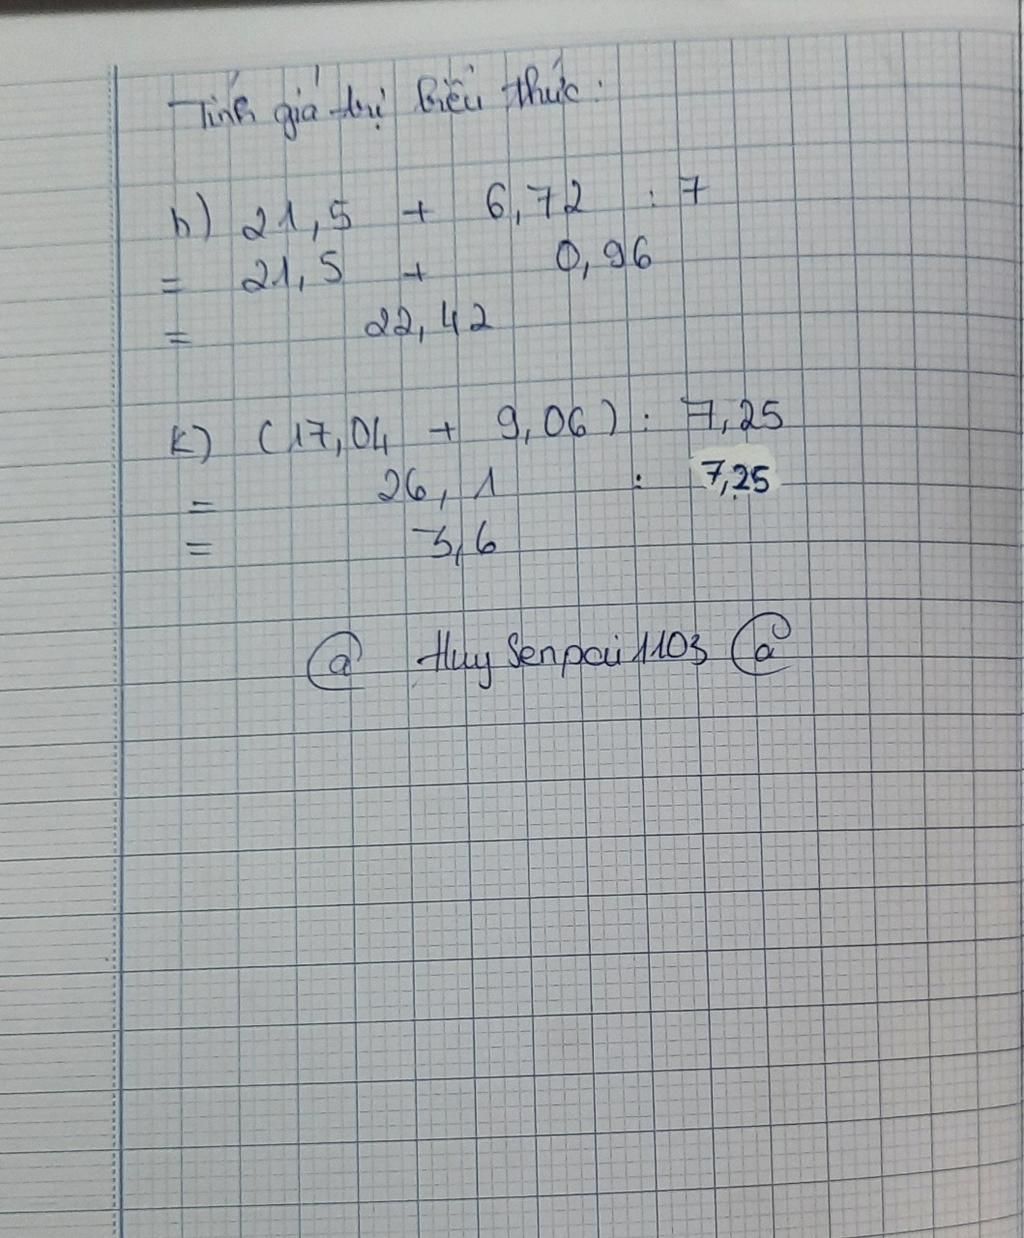 Tính giá trị biểu thức:
h) 21,5 + 6,72 : 7
= 21,5 + 0,96
= 22,42
k) (17,04 + 9,06) : 7,25
= 26,1 : 7,25
= 3,6
@ Huy Senpai 1103 @